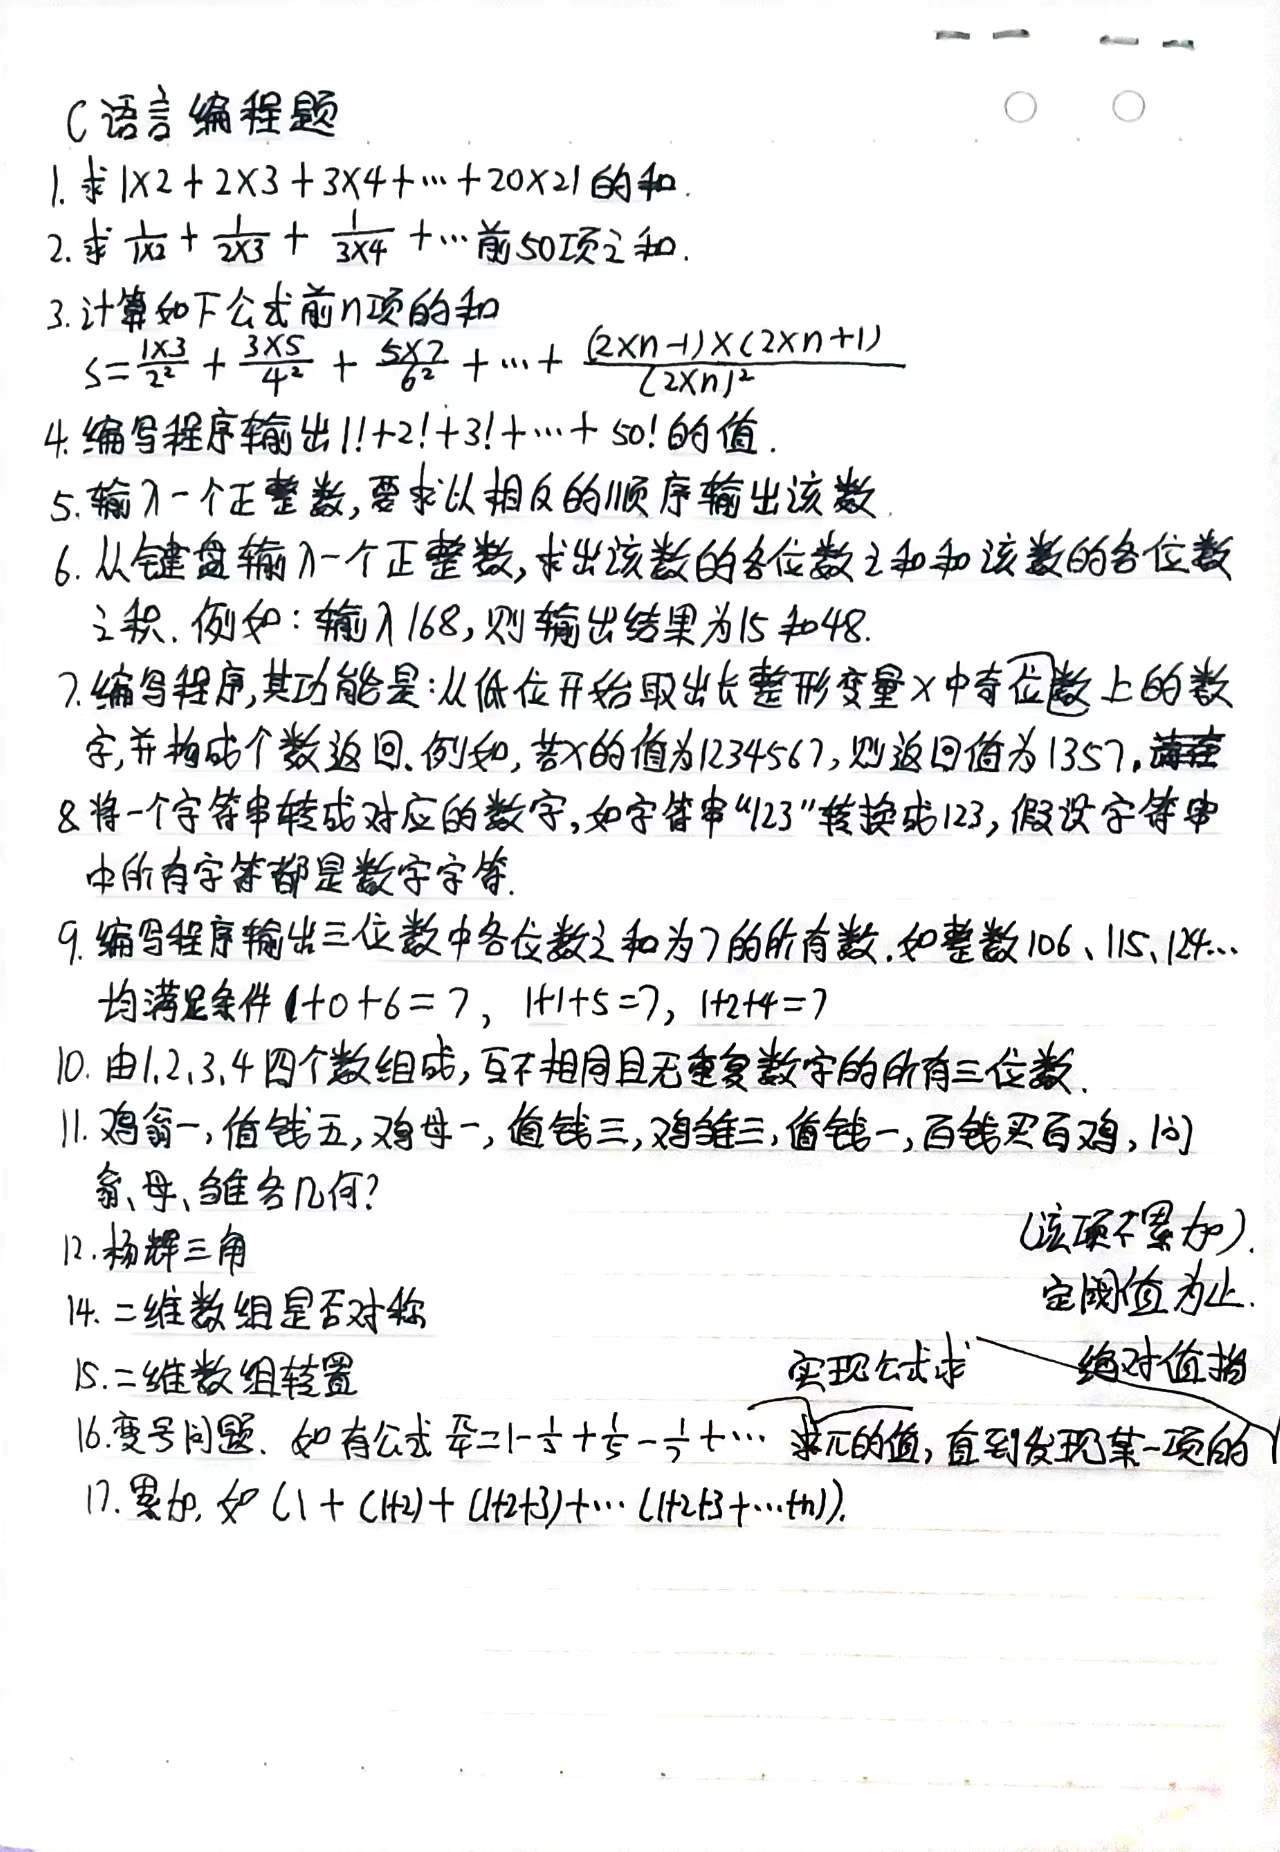 C语言编程题
1. 求1×2+2×3+3×4+…+20×21的和.
2. 求 1/1×2 + 1/2×3 + 1/3×4 +…前50项之和.
3. 计算如下公式前n项的和
S= 1×3/2² + 3×5/4² + 5×7/6² +…+ (2×n-1)×(2×n+1)/(2×n)²
4. 编写程序输出1!+2!+3!+…+50!的值.
5. 输入一个正整数,要求以相反的顺序输出该数.
6. 从键盘输入一个正整数,求出该数的各位数之和和该数的各位数
之积. 例如:输入168,则输出结果为15和48.
7. 编写程序,其功能是:从低位开始取出长整形变量x中奇位数上的数
字,并构成个数返回.例如,若x的值为1234567,则返回值为1357.
8. 将一个字符串转成对应的数字,如字符串“123”转换成123,假设字符串
中所有字符都是数字字符.
9. 编写程序输出三位数中各位数之和为7的所有数.如整数106、115、124…
均满足条件 1+0+6=7, 1+1+5=7, 1+2+4=7
10. 由1、2、3、4四个数组成,互不相同且无重复数字的所有三位数.
11. 鸡翁一,值钱五,鸡母一,值钱三,鸡雏三,值钱一,百钱买百鸡,问
翁、母、雏各几何?
12. 杨辉三角
14. 二维数组是否对称
15. 二维数组转置
16. 变号问题. 如有公式 π/4=1-1/3+1/5-1/7+… 实现公式求 求π的值,直到发现某一项的
绝对值指
定阈值为止.
(该项不累加).
17. 累加, 如(1+(1+2)+(1+2+3)+…(1+2+3+…+n)).